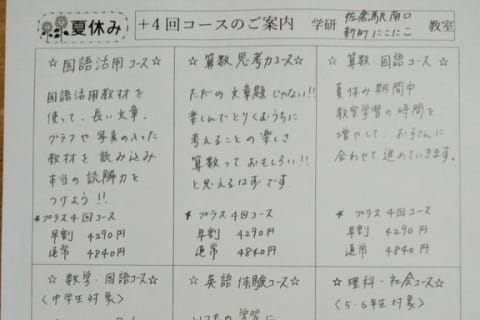 夏休み
+4回コースのご案内 学研 佐倉駅南口
新町にこにこ 教室
☆国語活用コース☆
国語活用教材を
使って、長い文章、
グラフや写真の入った
教材を読み込み
本当の読解力を
つけよう!!
*プラス4回コース
早割 4290円
通常 4840円
☆算数思考力コース☆
ただの文章題じゃない!!
楽しんでとりくむうちに
考えることの楽しさ
算数っておもしろい!!
と思えるはずです
*プラス4回コース
早割 4290円
通常 4840円
☆算数・国語コース☆
夏休み期間中
教室学習の時間を
増やして、お子さんに
合わせて進めていきます。
*プラス4回コース
早割 4290円
通常 4840円
☆数学・国語コース☆
〈中学生対象〉
☆英語体験コース☆
いつもの学習に
☆理科・社会コース☆
〈5・6年生対象〉